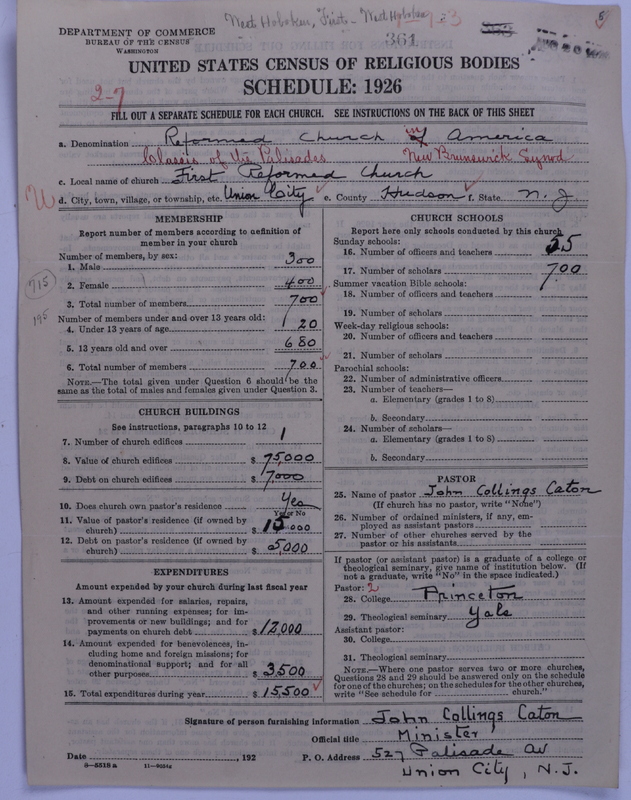 West Hoboken, First - West Hoboken
361
DEPARTMENT OF COMMERCE
BUREAU OF THE CENSUS
WASHINGTON
UNITED STATES CENSUS OF RELIGIOUS BODIES
SCHEDULE: 1926
2-7
FILL OUT A SEPARATE SCHEDULE FOR EACH CHURCH. SEE INSTRUCTIONS ON THE BACK OF THIS SHEET
a. Denomination Reformed Church in America
Classis of the Palisades New Brunswick Synod
c. Local name of church First Reformed Church
d. City, town, village, or township, etc. Union City e. County Hudson f. State N. J.
MEMBERSHIP
Report number of members according to definition of
member in your church
Number of members, by sex:
1. Male 300
2. Female 400
3. Total number of members 700
715
195
Number of members under and over 13 years old:
4. Under 13 years of age 20
5. 13 years old and over 680
6. Total number of members 700
NOTE.—The total given under Question 6 should be the
same as the total of males and females given under Question 3.
CHURCH BUILDINGS
See instructions, paragraphs 10 to 12
7. Number of church edifices 1
8. Value of church edifices $ 75,000
9. Debt on church edifices $ 7000
10. Does church own pastor's residence Yes
Yes or No
11. Value of pastor's residence (if owned by
church) $ 15,000
12. Debt on pastor's residence (if owned by
church) $ 5,000
EXPENDITURES
Amount expended by your church during last fiscal year
13. Amount expended for salaries, repairs,
and other running expenses; for im-
provements or new buildings; and for
payments on church debt $ 12,000
14. Amount expended for benevolences, in-
cluding home and foreign missions; for
denominational support; and for all
other purposes $ 3,500
15. Total expenditures during year $ 15,500
CHURCH SCHOOLS
Report here only schools conducted by this church
Sunday schools:
16. Number of officers and teachers
17. Number of scholars 700
Summer vacation Bible schools:
18. Number of officers and teachers
19. Number of scholars
Week-day religious schools:
20. Number of officers and teachers
21. Number of scholars
Parochial schools:
22. Number of administrative officers
23. Number of teachers—
a. Elementary (grades 1 to 8)
b. Secondary
24. Number of scholars—
a. Elementary (grades 1 to 8)
b. Secondary
PASTOR
25. Name of pastor John Collings Caton
(If church has no pastor, write "None")
26. Number of ordained ministers, if any, em-
ployed as assistant pastors
27. Number of other churches served by the
pastor or his assistants
If pastor (or assistant pastor) is a graduate of a college or
theological seminary, give name of institution below. (If
not a graduate, write "No" in the space indicated.)
Pastor: 2
28. College Princeton
29. Theological seminary Yale
Assistant pastor:
30. College
31. Theological seminary
NOTE.—Where one pastor serves two or more churches,
Questions 28 and 29 should be answered only on the schedule
for one of the churches; on the schedules for the other churches,
write "See schedule for church."
Signature of person furnishing information John Collings Caton
Official title Minister
Date , 192 P. O. Address 527 Palisade Av
8-5518 a Union City, N. J.